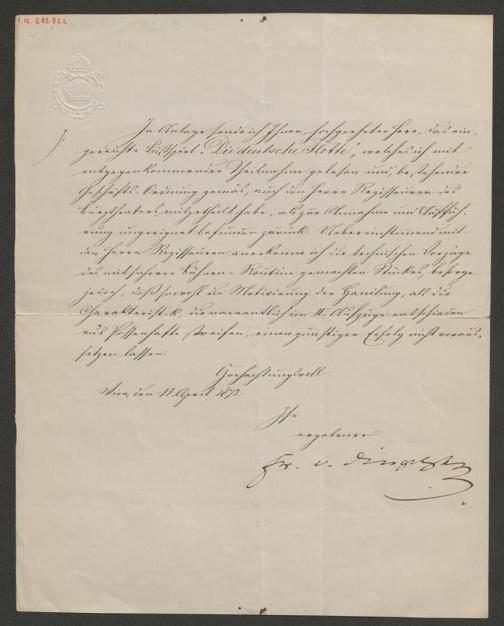 I.N. 212.922
In Anlage sende ich Ihnen, hochgeehrter Herr, das ein-
gereichte Lustspiel: "Die deutsche Flotte", welches ich mit
entgegenkommender Theilnahme gelesen und, bestehender
Geschäfts-Ordnung gemäs, auch den Herrn Regisseuren des
Burgtheaters mitgetheilt habe, als zur Annahme und Auffüh-
rung ungeeignet befunden zurück. Uebereinstimmend mit
den Herrn Regisseuren anerkenne ich die technischen Vorzüge
des mit sicherer Bühnen-Routine gemachten Stückes, besorge
jedoch, daß sowohl die Motivirung der Handlung, als die
Charakteristik, die namentlich im II. Aufzuge entschieden
ans Possenhafte streifen, einen günstigen Erfolg nicht voraus-
setzen lassen.
Hochachtungsvoll
Wien, den 11. April 1872
Ihr
ergebener
Fr. v. Dingelstedt